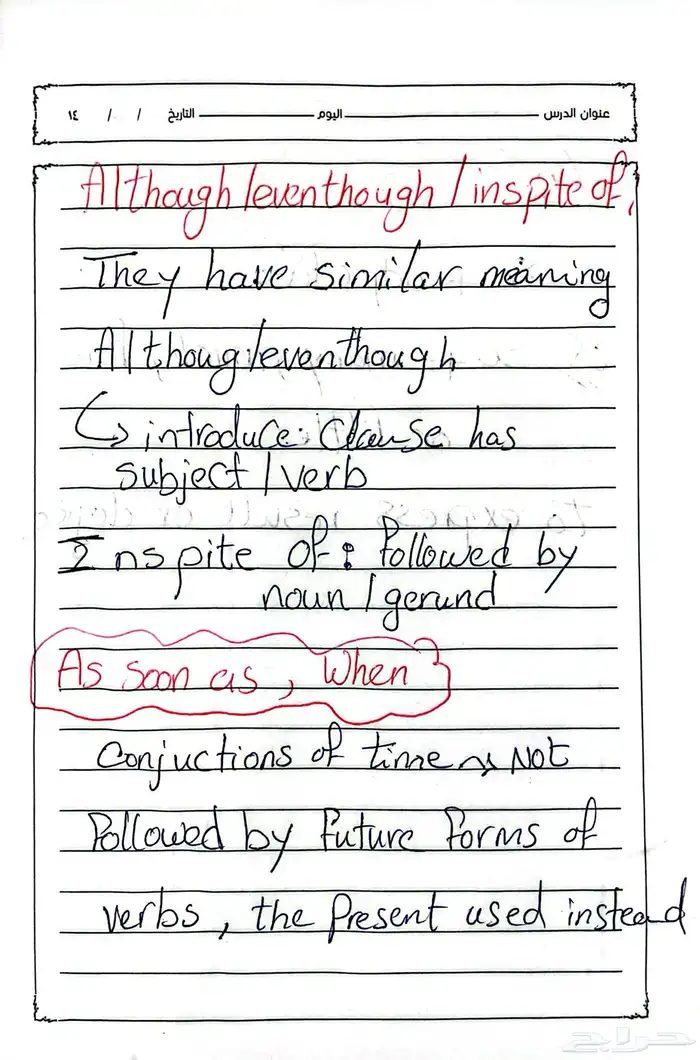 عنوان الدرس اليوم التاريخ / / ١٤
Although/eventhough/inspite of,
They have similar meaning
Althoug/eventhough
introduce: Clause has
subject/verb
Inspite of: followed by
noun/gerund
As soon as, When
Conjuctions of time → Not
Followed by Future Forms of
verbs, the Present used instead
حراج